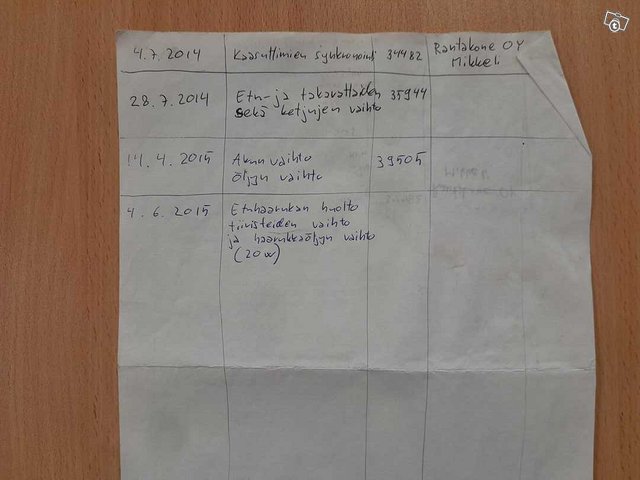 4.7.2014 Kaasuttimien synkronointi 34482 Rantakone OY
Mikkeli
28.7.2014 Etu- ja takarattaiden 35944
sekä ketjujen vaihto
14.4.2015 Akun vaihto 39505
öljyn vaihto
4.6.2015 Etuhaarukan huolto
tiivisteiden vaihto
ja haarukkaöljyn vaihto
(20w)